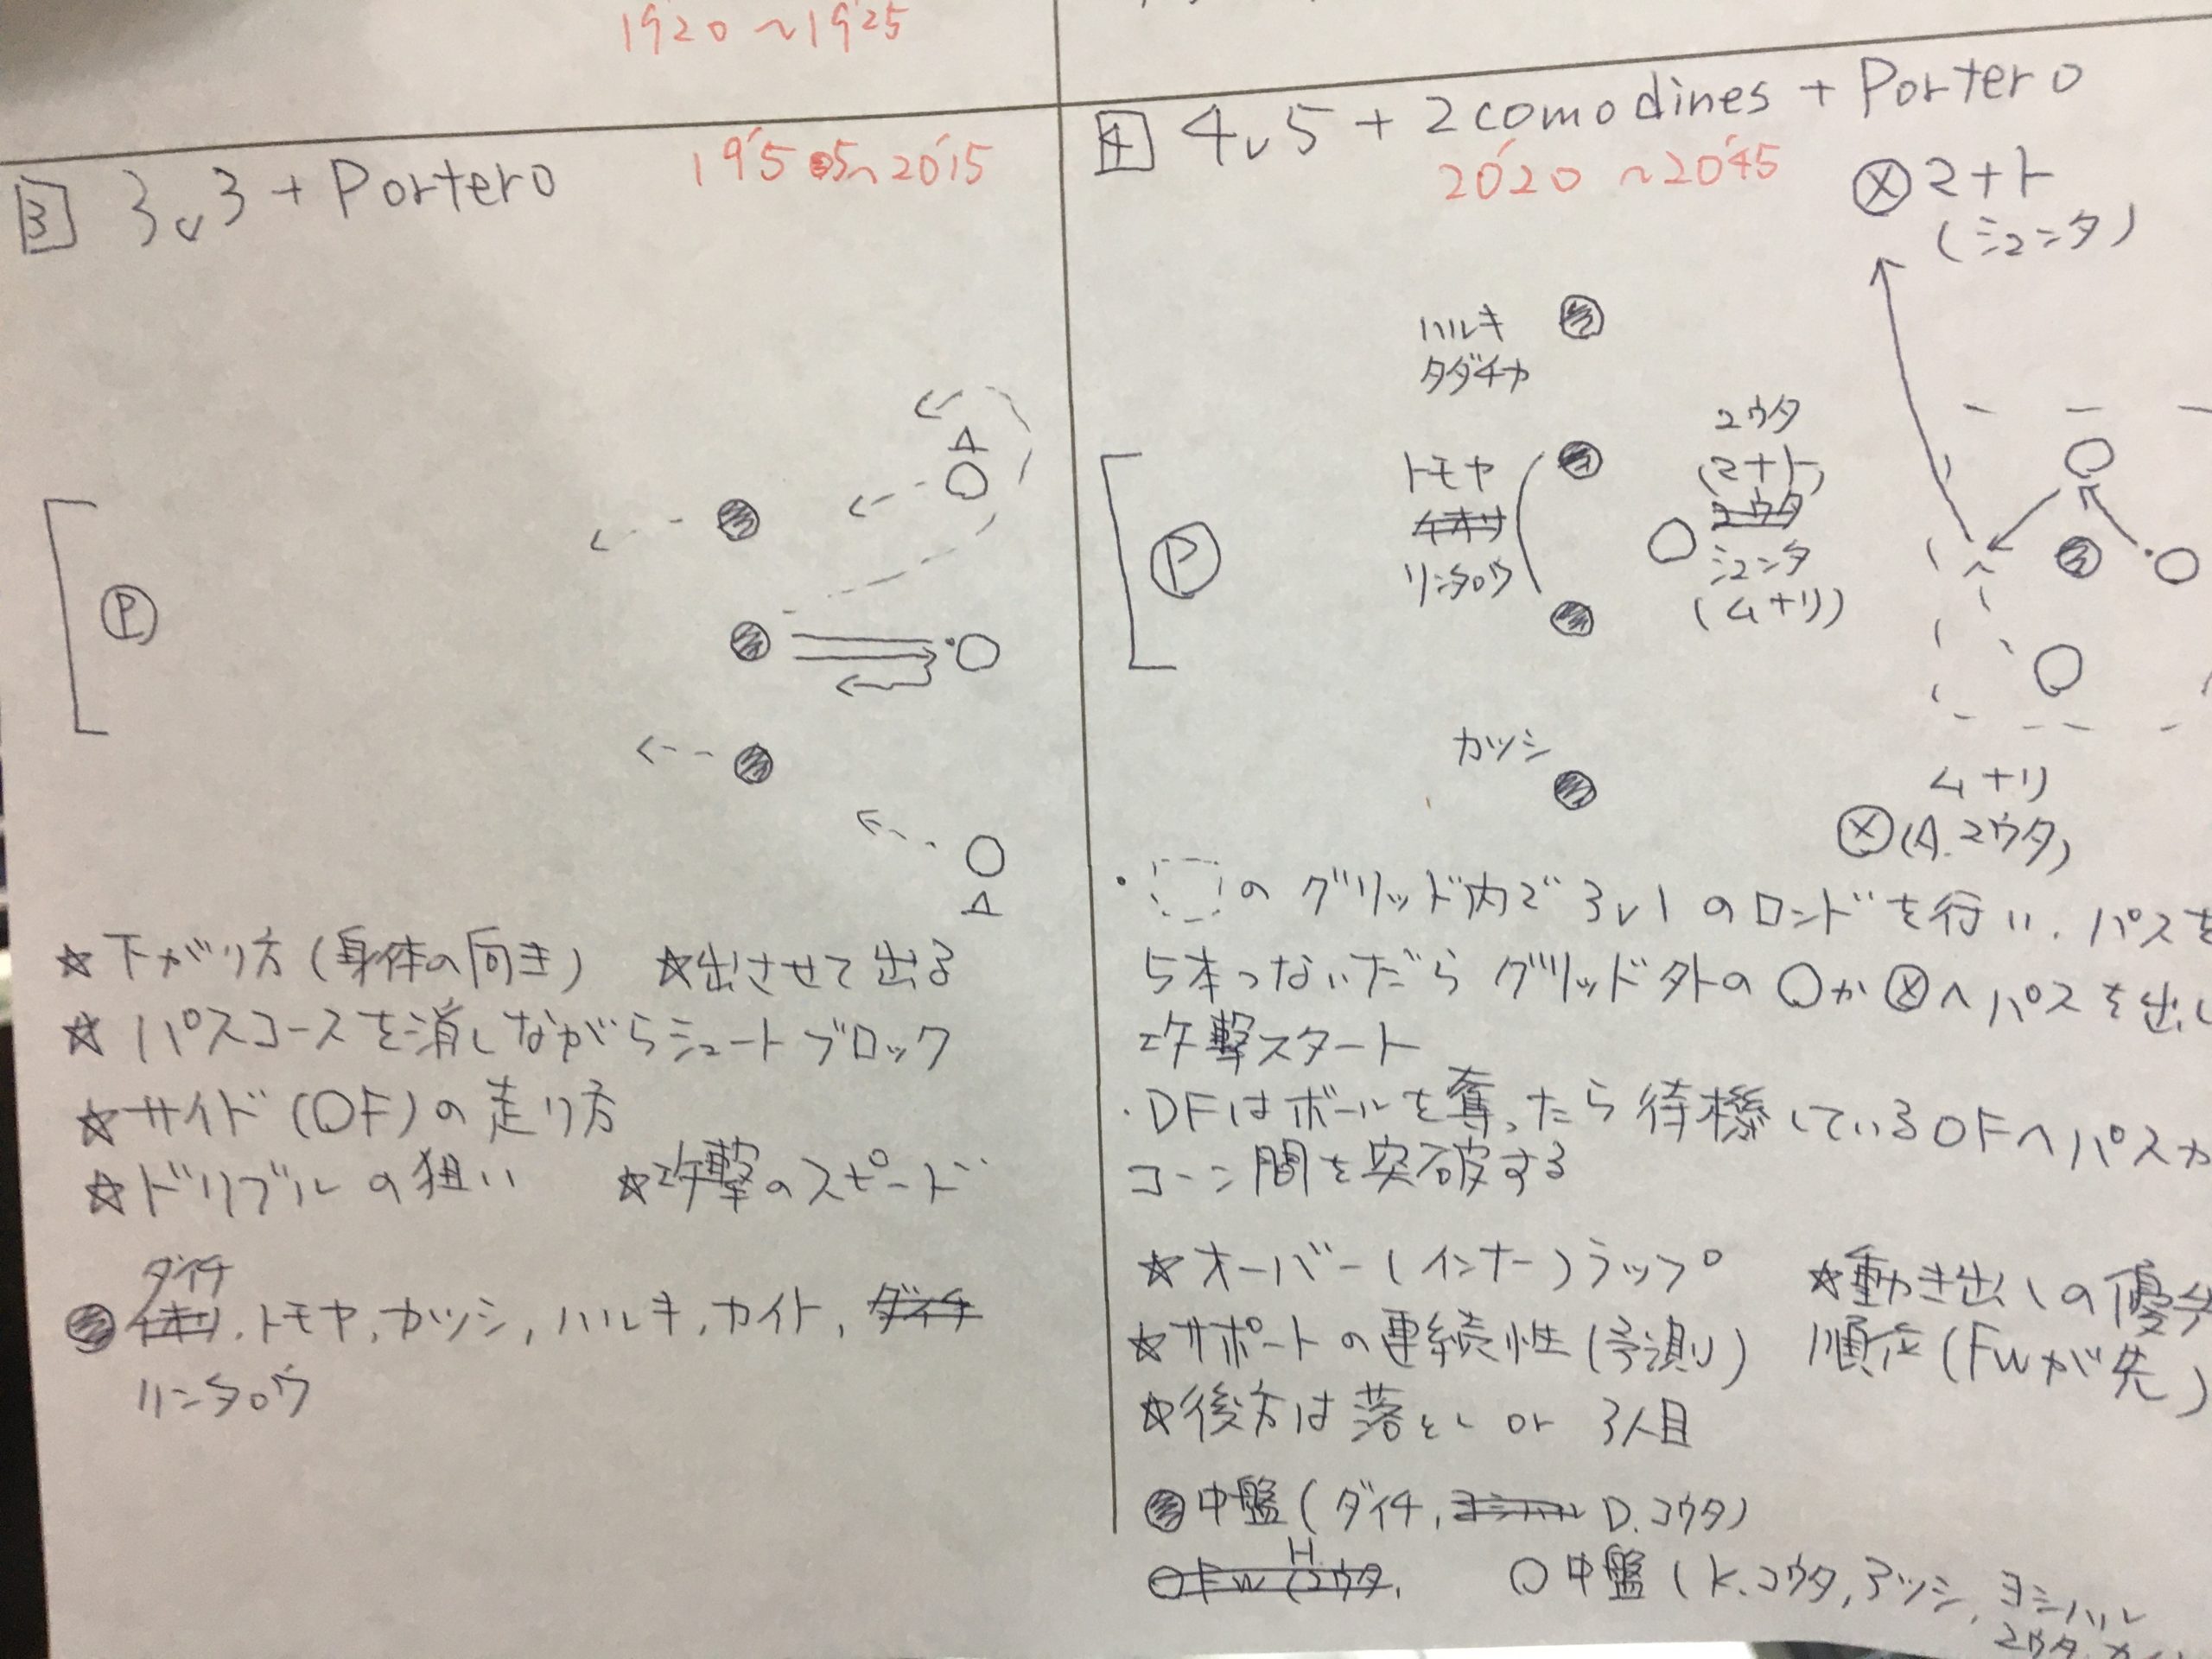 19'20 ~ 19'25
3 3v3 + Portero
19'55 ~ 20'15
P
☆下がり方(身体の向き) ☆出させて出る
☆パスコースを消しながらシュートブロック
☆サイド(OF)の走り方
☆ドリブルの狙い ☆攻撃のスピード
ダイチ
イオリ, トモヤ, カツシ, ハルキ, カイト, ダイチ
リンタロウ
4 4v5 + 2comodines + Portero
20'20 ~ 20'45
マナト
(シュンタ)
ハルキ
タダチカ
トモヤ
イオリ
リンタロウ
P
コウタ
(マナト)
コウタ
シュンタ
(ムナリ)
カツシ
ムナリ
(A.コウタ)
・のグリッド内で3v1のロンドを行い、パスを
5本つないだらグリッド外の○か⊗へパスを出し
攻撃スタート
・DFはボールを奪ったら待機しているOFへパスか
コーン間を突破する
☆オーバー(インナー)ラップ ☆動き出しの優先
☆サポートの連続性(予測) 順位(FWが先)
☆後方は落とし or 3人目
中盤(ダイチ, ヨシハル D.コウタ)
○FW (H.コウタ,
○中盤(K.コウタ, アツシ, ヨシハル
コウタ